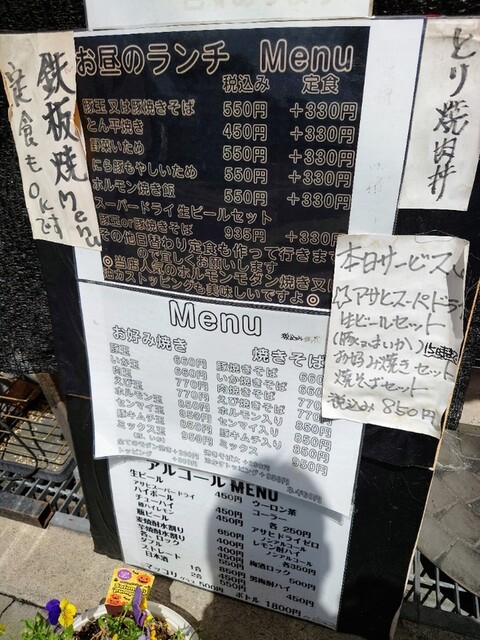 お昼のランチ Menu
税込み 定食
豚玉 又は豚焼きそば 550円 +330円
とん平焼き 450円 +330円
野菜いため 550円 +330円
にら豚もやしいため 550円 +330円
ホルモン焼き飯 550円 +330円
スーパードライ生ビールセット
豚玉or豚焼きそば 935円 +330円
その他日替わり定食も作って行きます
ので宜しくお願いします
◎当店人気のホルモンモダン焼き又は
油カストッピングも美味しいですよ◎
鉄板焼Menu
定食もOKです
とり焼肉丼
本日サービス
アサヒスーパードライ
生ビールセット
(豚orいか)
お好み焼きセット
焼そばセット
税込み 850円
Menu
お好み焼き 焼きそば
豚玉 660円 豚焼きそば
いか玉 660円 いか焼きそば
肉玉 770円 肉焼きそば
えび玉 770円 えび焼きそば
ホルモン玉 850円 ホルモン入り 850円
センマイ玉 850円 センマイ入り 850円
豚キムチ玉 850円 豚キムチ入り 850円
ミックス 950円 ミックス 950円
アルコールMENU
生ビール
アサヒスーパードライ 450円
ハイボール
チューハイ 450円
瓶ビール 650円
麦焼酎水割り 400円
芋焼酎水割り 400円
各、ロック
ダブル
ストレート
日本酒 1合
2合
マッコリ グラス 500円 ボトル 1800円
ウーロン茶
コーラー
各 250円
アサヒドライゼロ
ノンアルコール
レモン酎ハイ
ノンアルコール
各350円
梅酒ロック 500円
男梅酎ハイ 450円